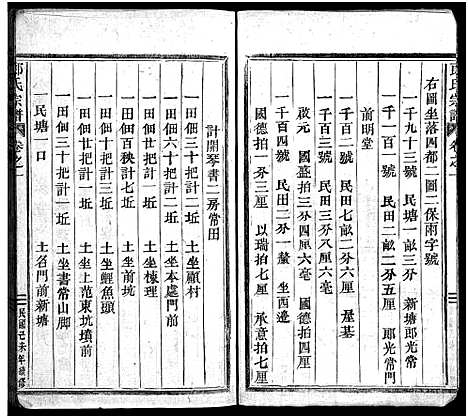 郎氏宗譜 卷之一
右圖坐落四都二圖二保雨字號
一千九十三號 民塘一畝三分 新塘郎光常門
一千一百號 民田二畝二分五厘 郎光常門
前明堂
一千百二號 民田七畝二分六厘 屋基
一千百三號 民田三畝八分三厘六毫
啟元 國盛拍三分四厘六毫 國
一千百四號 民田二分一釐 坐西邊
國德拍一分三厘 以瑞拍七厘 承意拍七厘
計開琴書二房常田
一田佃三十把計二坵 土坐顧村
一田佃六十把計一坵 土坐本處門前
一田佃廿把計一坵 土坐棟裡
一田佃百秧計七坵 土坐前坑
一田佃廿把計三坵 土坐鯉魚頭
一田佃三十把計一坵 土坐上范東坑墳前
一田佃三十把計二坵 土坐書常山脚
一民塘一口 土名門前新塘
郎氏宗譜 卷之一
民國己未年續修